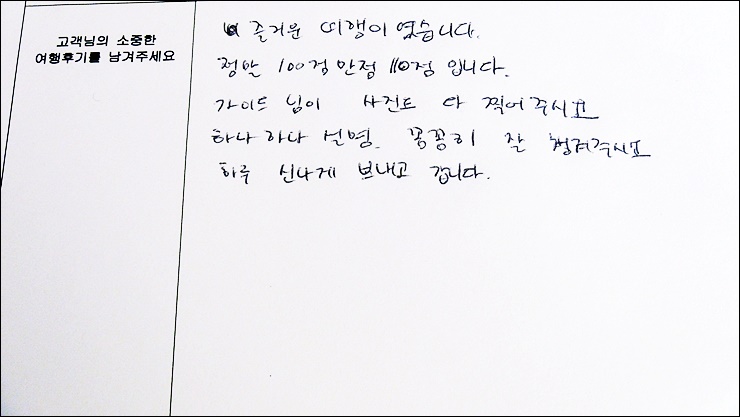 고객님의 소중한
여행후기를 남겨주세요
즐거운 여행이였습니다.
정말 100점만점 110점 입니다.
가이드 님이 사진도 다 찍어주시고
하나하나 설명. 꼼꼼히 잘 챙겨주시고
하루 신나게 보내고 갑니다.